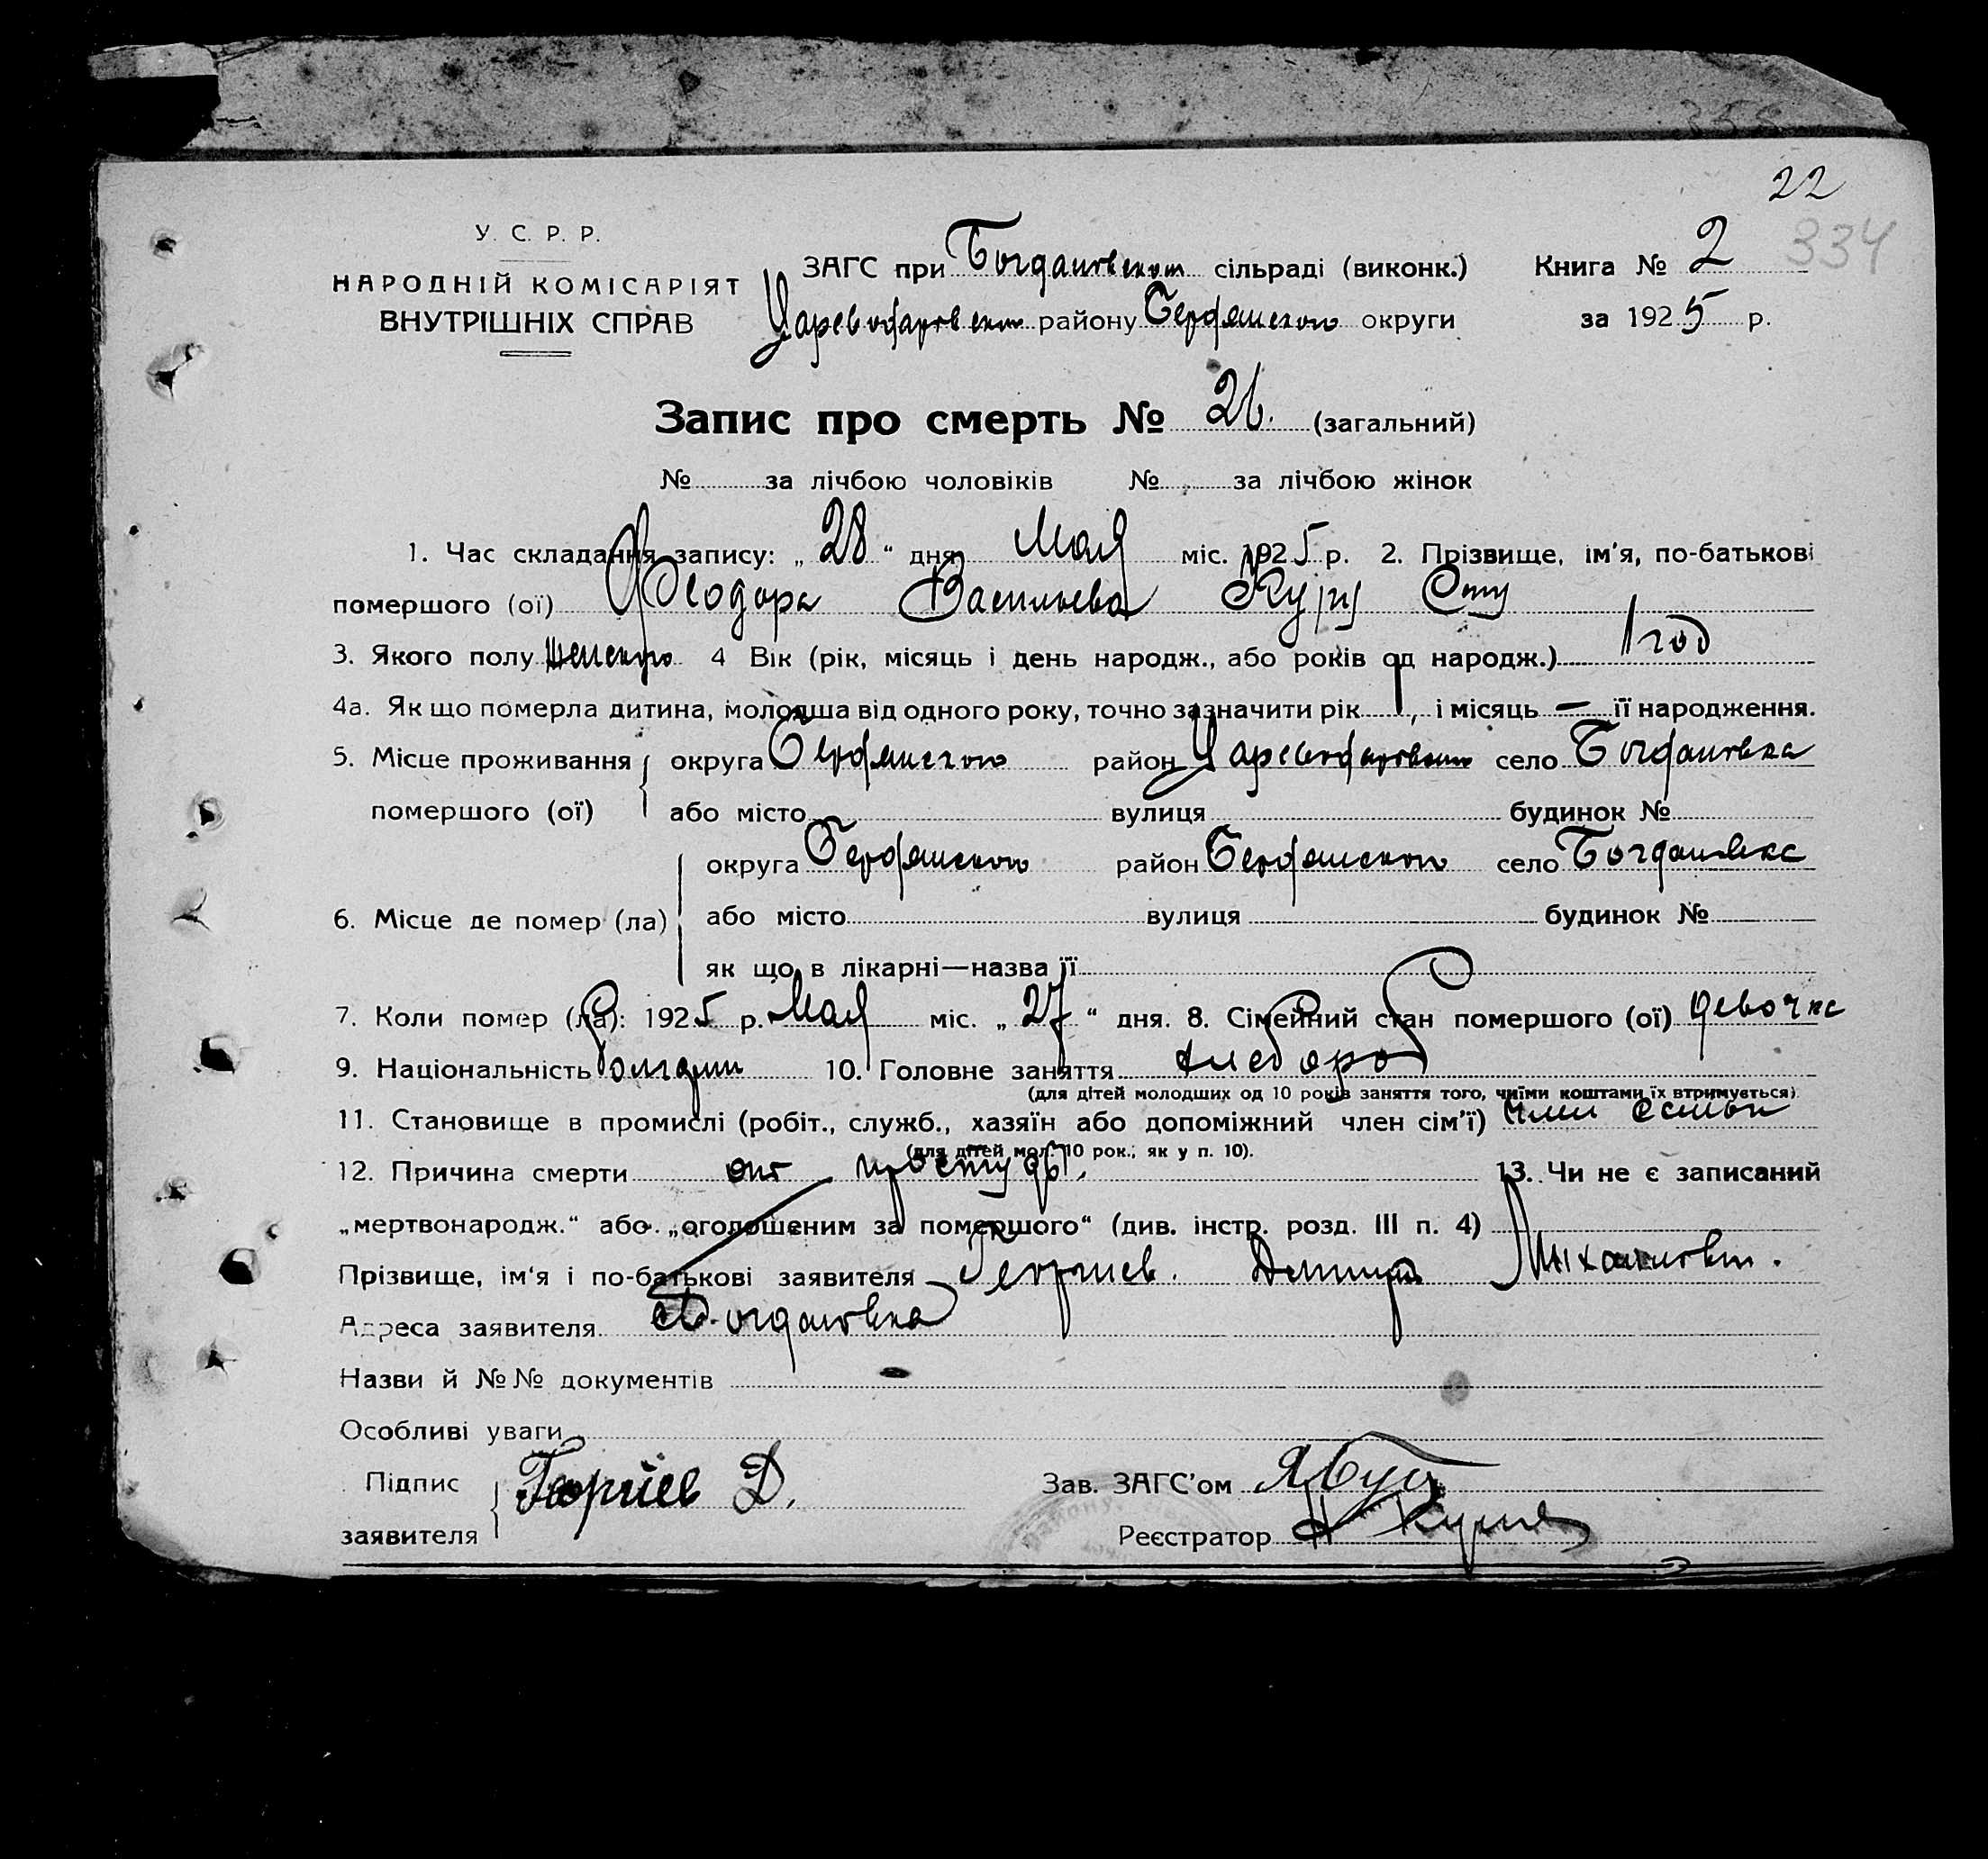 22
334
У. С. Р. Р.
НАРОДНІЙ КОМІСАРІЯТ
ВНУТРІШНІХ СПРАВ
ЗАГС при Богдановском сільраді (виконк.) Книга № 2
району Бердянского округи за 1925 р.
Запис про смерть № 26. (загальний)
№ за лічбою чоловіків № за лічбою жінок
1. Час складання запису: „ 28 “ дня Мая міс. 1925 р. 2. Прізвище, ім'я, по-батькові
помершого (ої) Феодора Васильева
3. Якого полу женского 4 Вік (рік, місяць і день народж., або років од народж.) 1 год
4а. Як що померла дитина, молодша від одного року, точно зазначити рік 1, і місяць — її народження.
5. Місце проживання округа Бердянского район село Богдановка
помершого (ої) або місто вулиця будинок №
округа Бердянского район Бердянского село Богдановка
6. Місце де помер (ла) або місто вулиця будинок №
як що в лікарні—назва її
7. Коли помер (ла): 1925 р. Мая міс. „ 27 “ дня. 8. Сімейний стан помершого (ої) девочка
9. Національність болгари 10. Головне заняття хлебороб
(для дітей молодших од 10 років заняття того, чиїми коштами їх втримується)
11. Становище в промислі (робіт., служб., хазяїн або допоміжний член сім'ї) член семьи
(для дітей мол. 10 рок., як у п. 10).
12. Причина смерти от простуды. 13. Чи не є записаний
„мертвонародж.“ або „оголошеним за помершого“ (див. інстр. розд. III п. 4)
Прізвище, ім'я і по-батькові заявителя Георгиев. Дмитрий Михайлович.
Адреса заявителя с. Богдановка
Назви й №№ документів
Особливі уваги
Підпис заявителя Георгиев Д.
Зав. ЗАГС'ом
Реєстратор